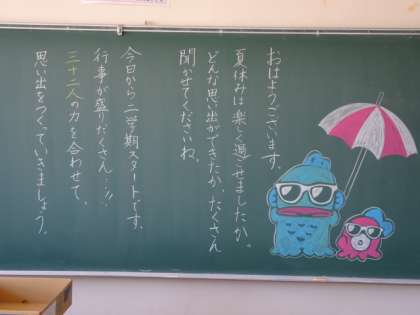 おはようございます。
夏休みは楽しく過ごせましたか。
どんな思い出ができたか、たくさん
聞かせてくださいね。
今日から二学期スタートです。
行事が盛りだくさん…!!
三十二人の力を合わせて、
思い出をつくっていきましょう。